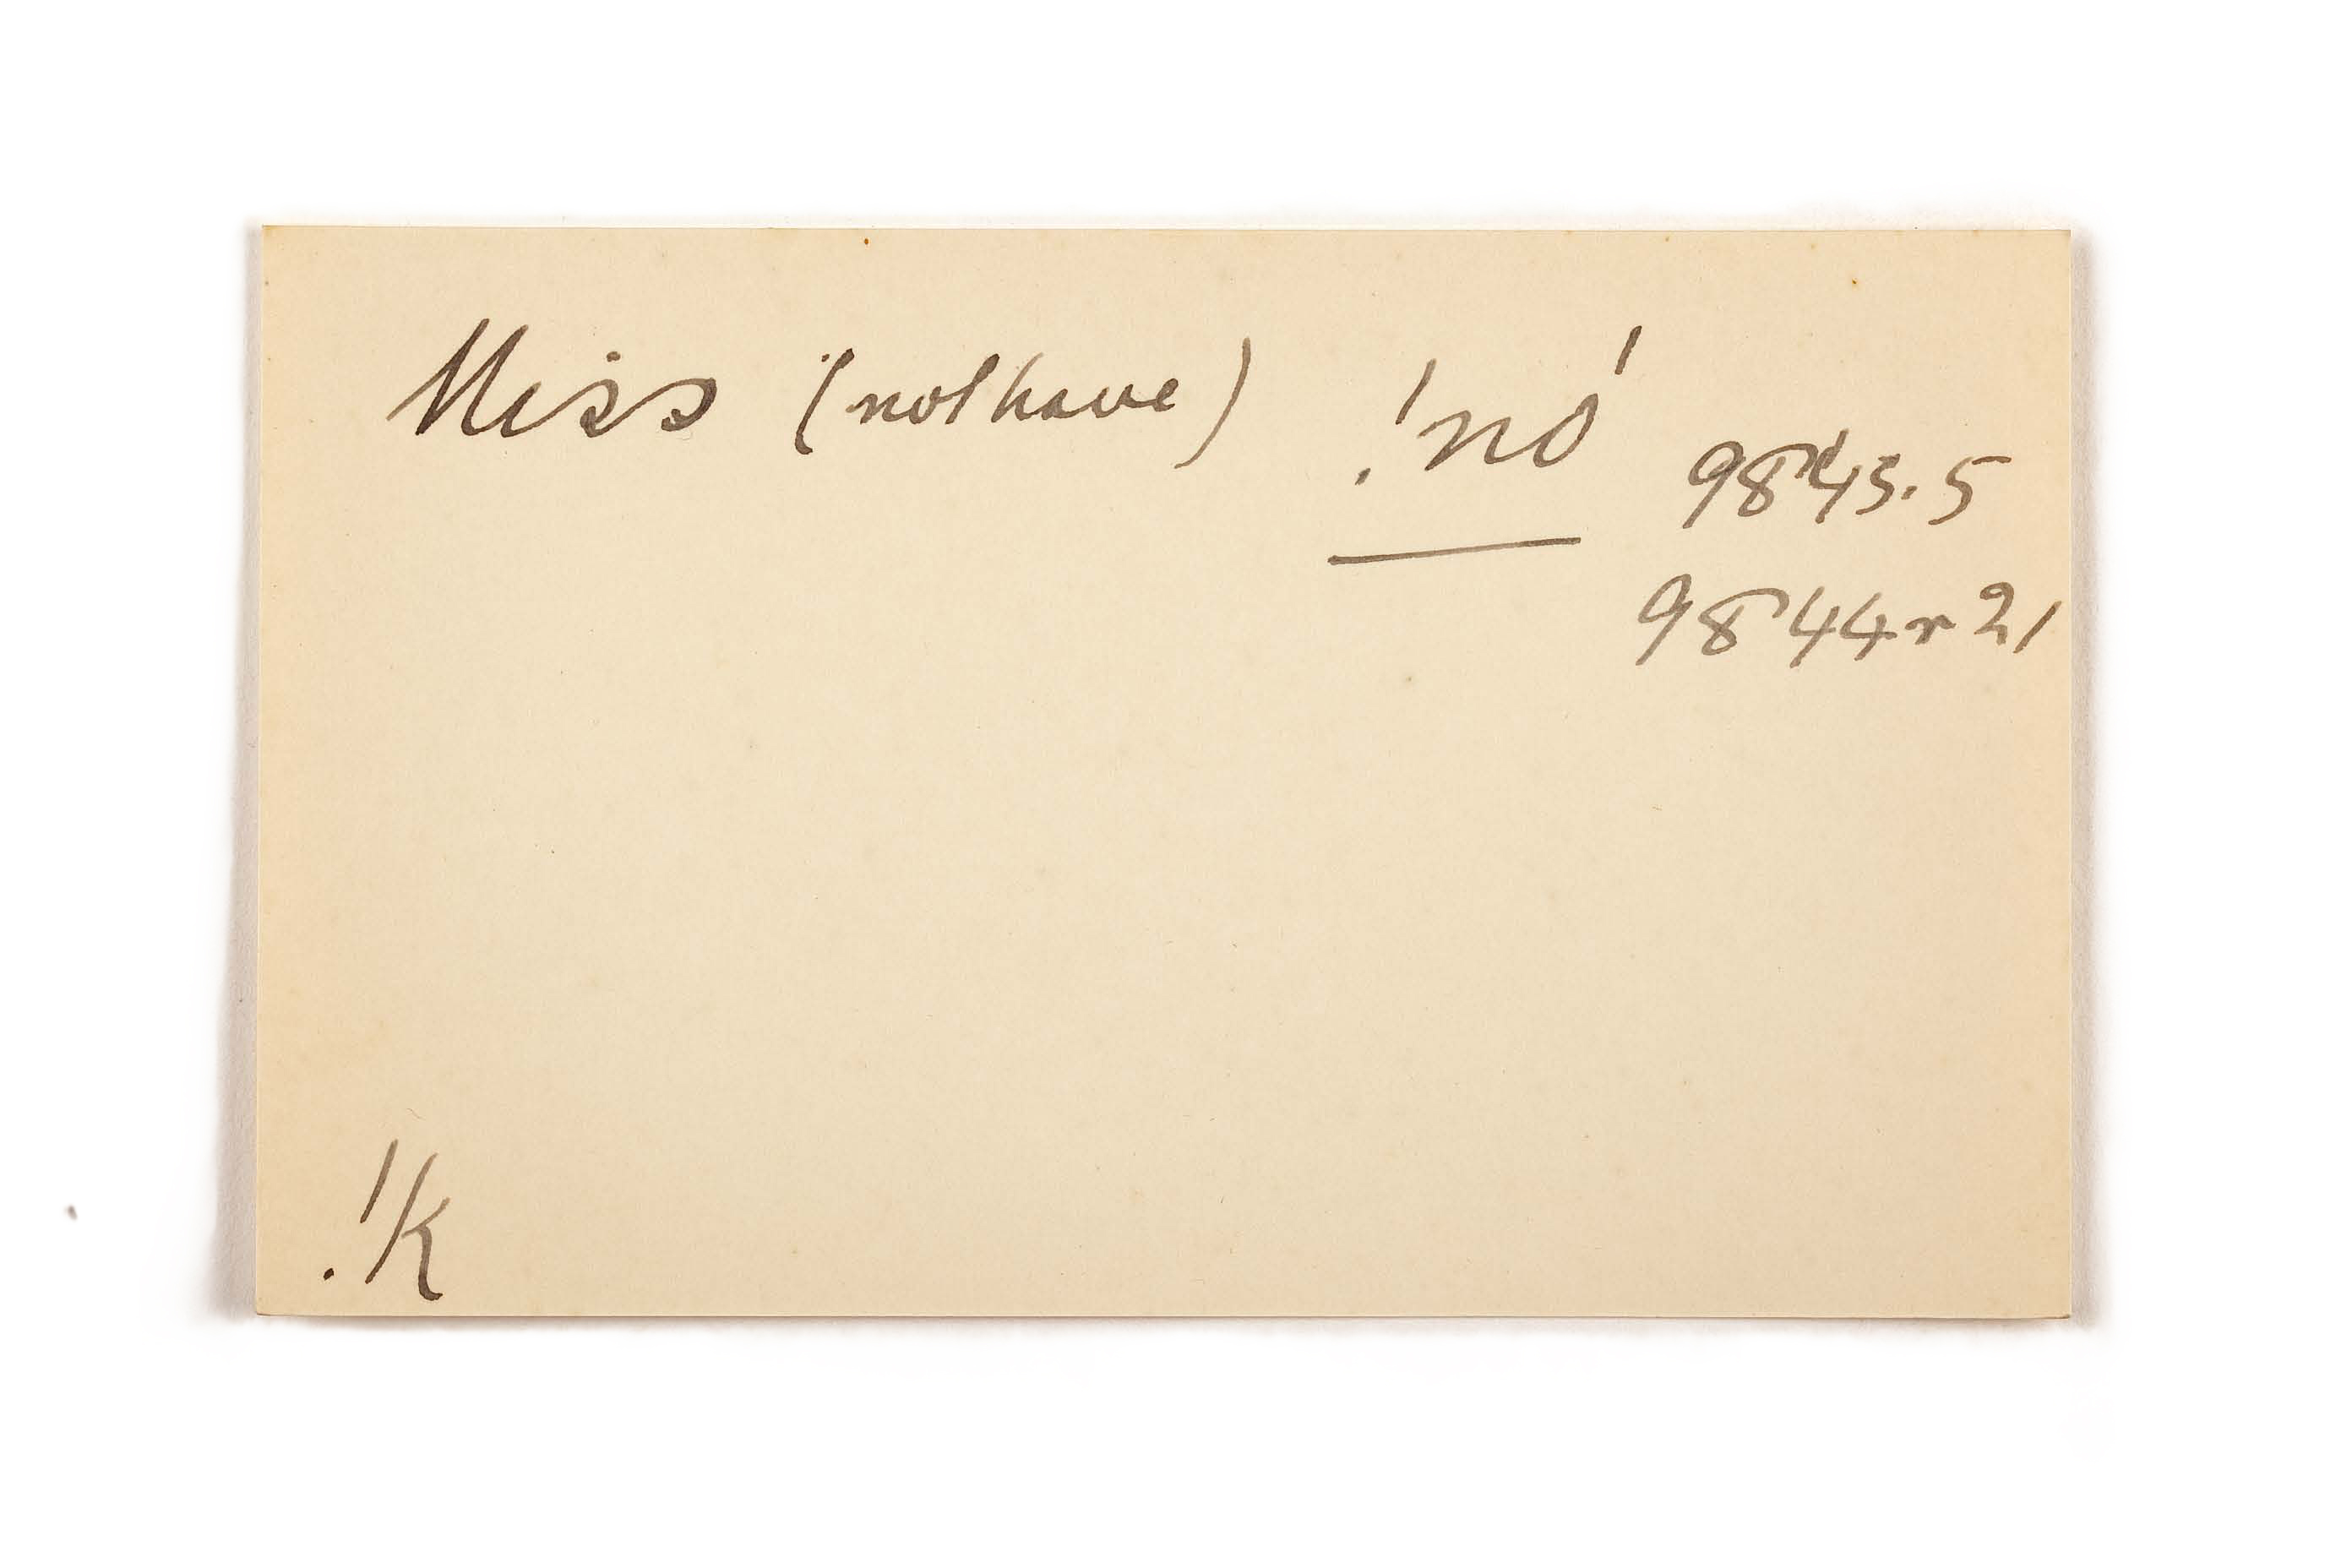 Miss (not have) !nó 9843.5
9844r21
!k